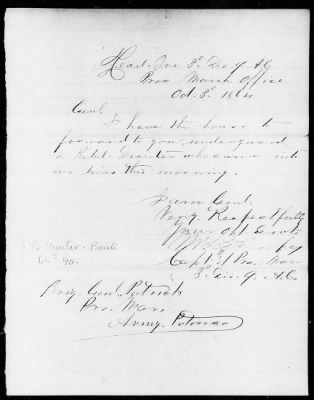 Head. Qrs 3d Div 9 A.C.
Prov Marsh Office
Oct. 3d 1864
Genl.
I have the honor to
forward to you under guard
a Rebel Deserter who came into
our lines this morning.
I am Genl.
Very Respectfully
Your Obt Servt
Capt & Pro. Mar
3d Div. 9 A.C.
Brig. Genl. Patrick
Pro. Mar
Army. Potomac